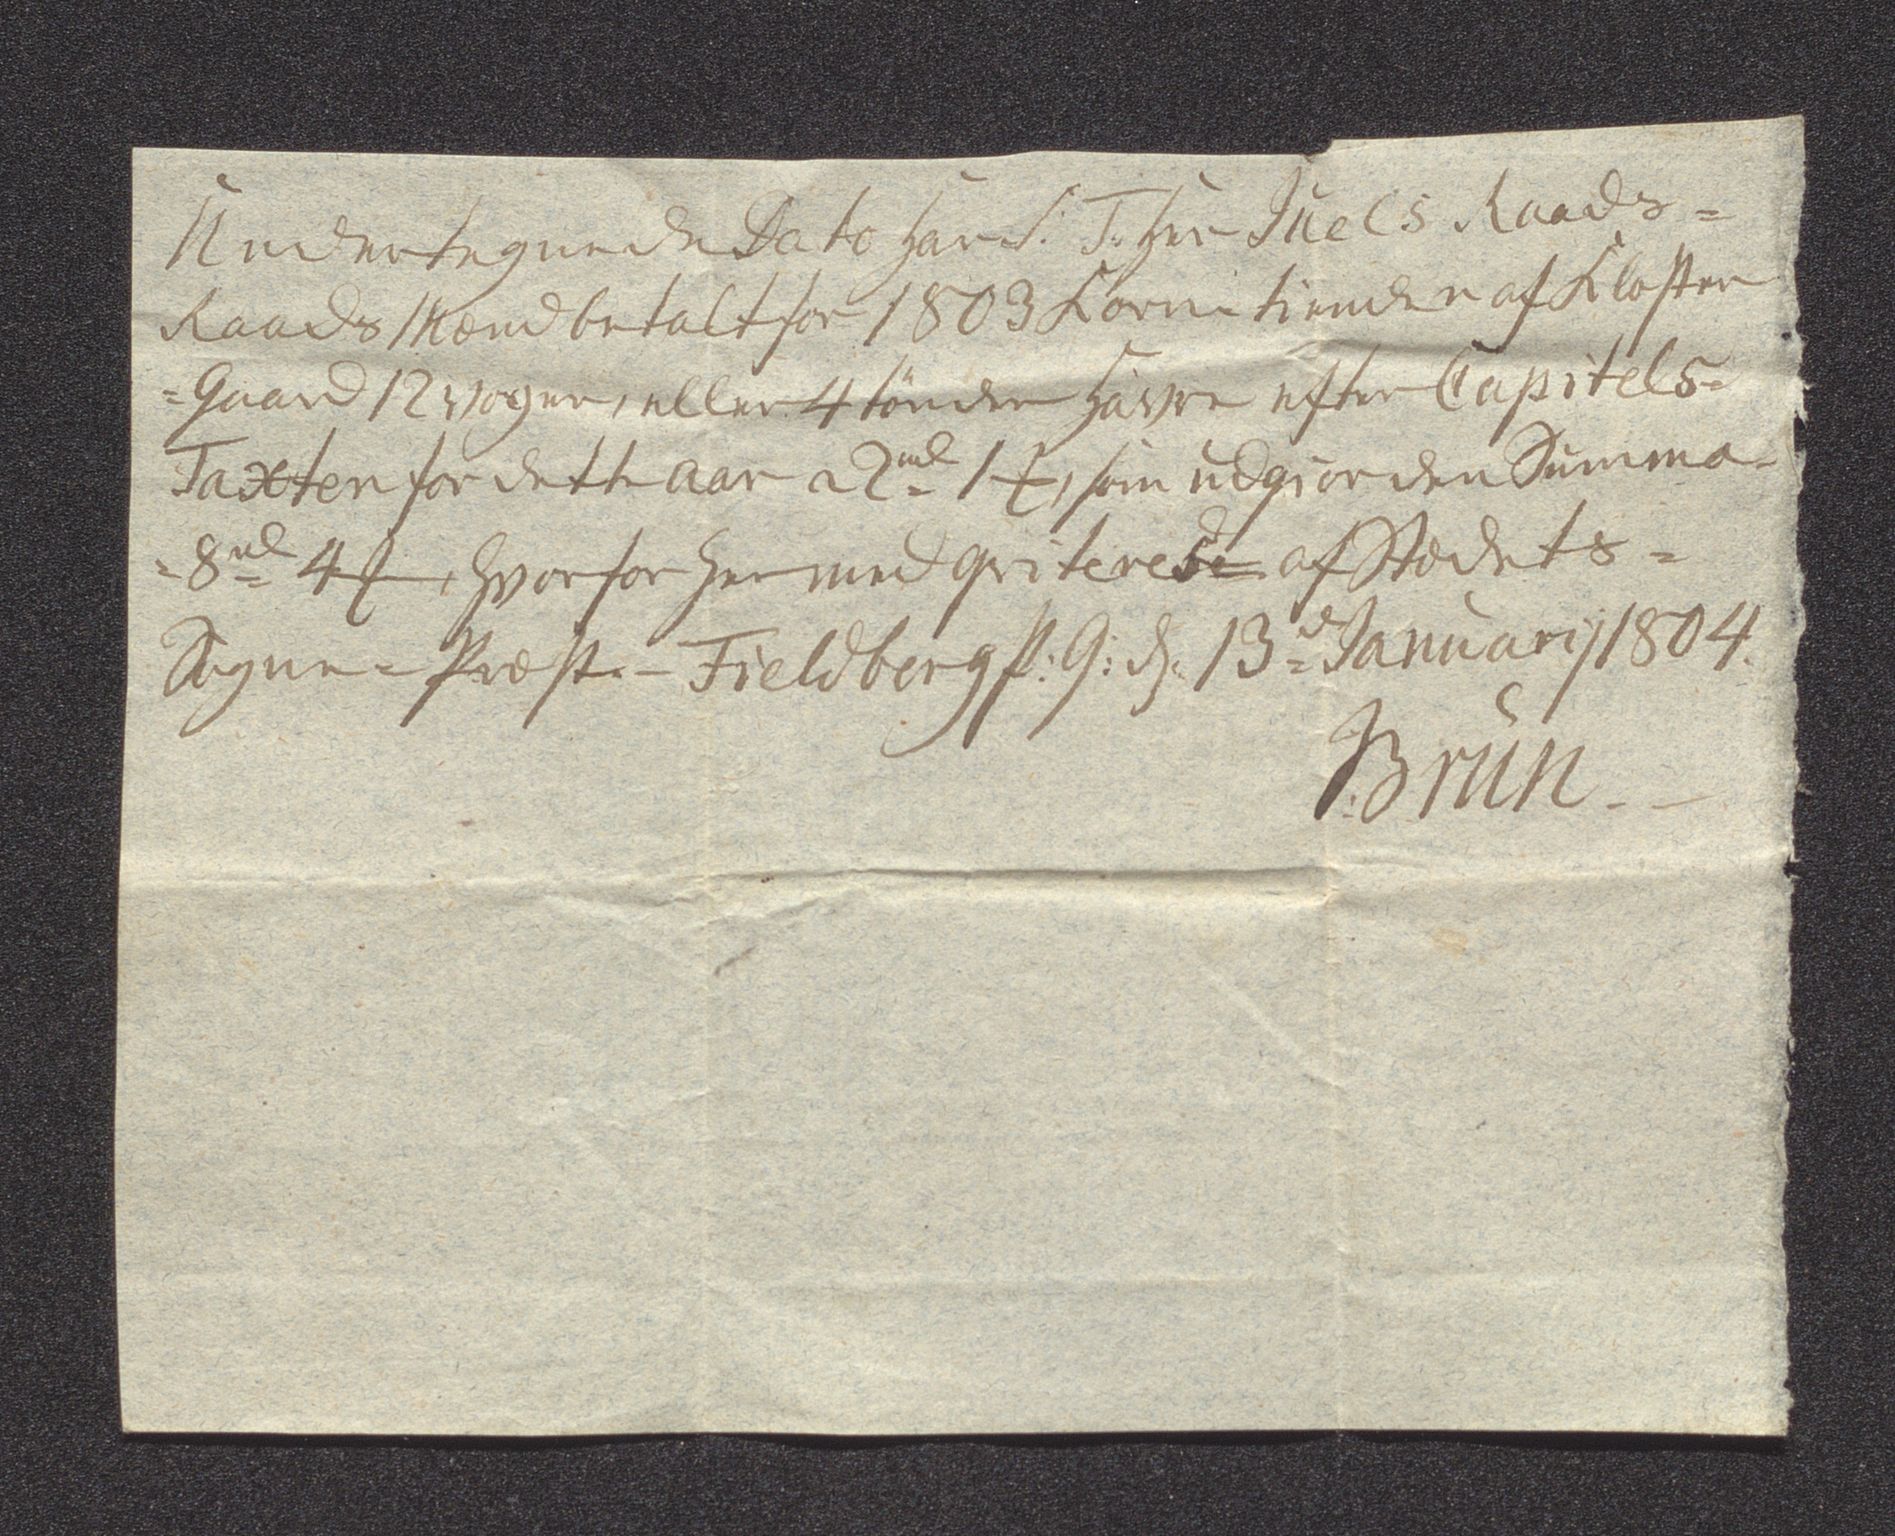 Undertegnede Dato har S: T: Her Juels Raads=
Raads Mænd betalt for 1803 Korn tienden af Kloster
=Gaard 12 voger, eller 4 tönder Havre efter Capitels=
Taxten for dette aar a 2 md 1 ß, som udgiör den Summa
=8 md 4 ß, hvorfor hermed qviteres af Stædets=
Sogne=Præst.– Fieldberg P: G: d: 13 d Januarij 1804.
Brun.–